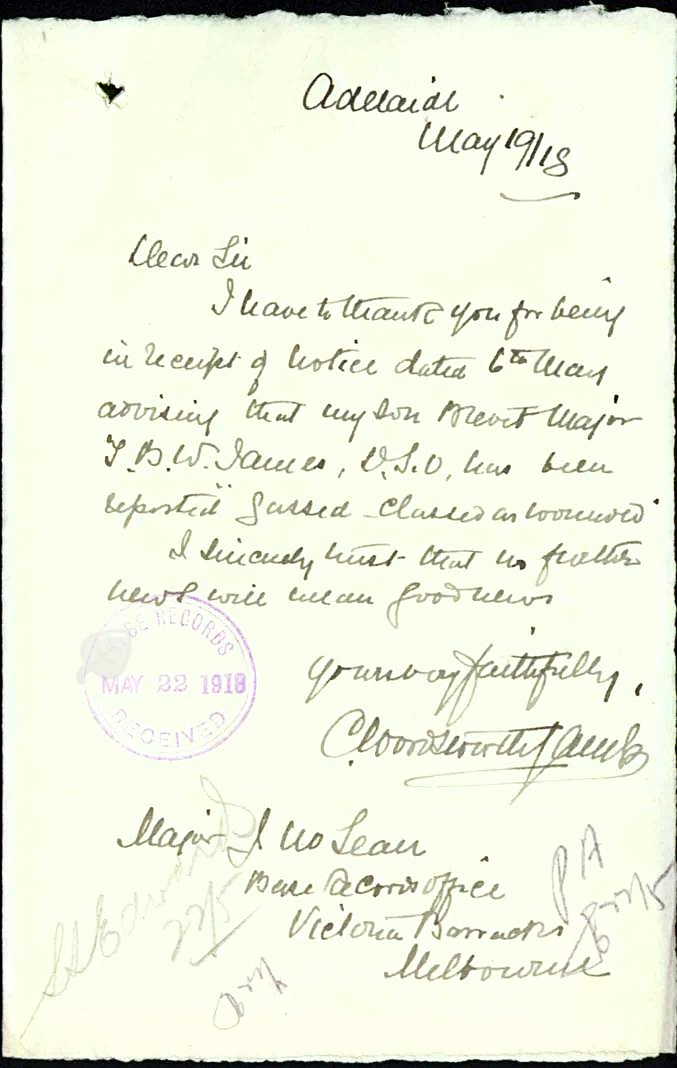 Adelaide
May 19/18
Dear Sir
I have to thank you for being
in receipt of notice dated 6th May
advising that my son Brevet Major
T.B.W. James, D.S.O, has been
reported "gassed - classed as wounded"
I sincerely trust that no further
news will mean good news
BASE RECORDS
MAY 22 1918
RECEIVED
Yours very faithfully,
C. Wordsworth James
Major J Mc Lean
Base Records Office
Victoria Barracks
Melbourne
Edwards
22/5
PA
22/5